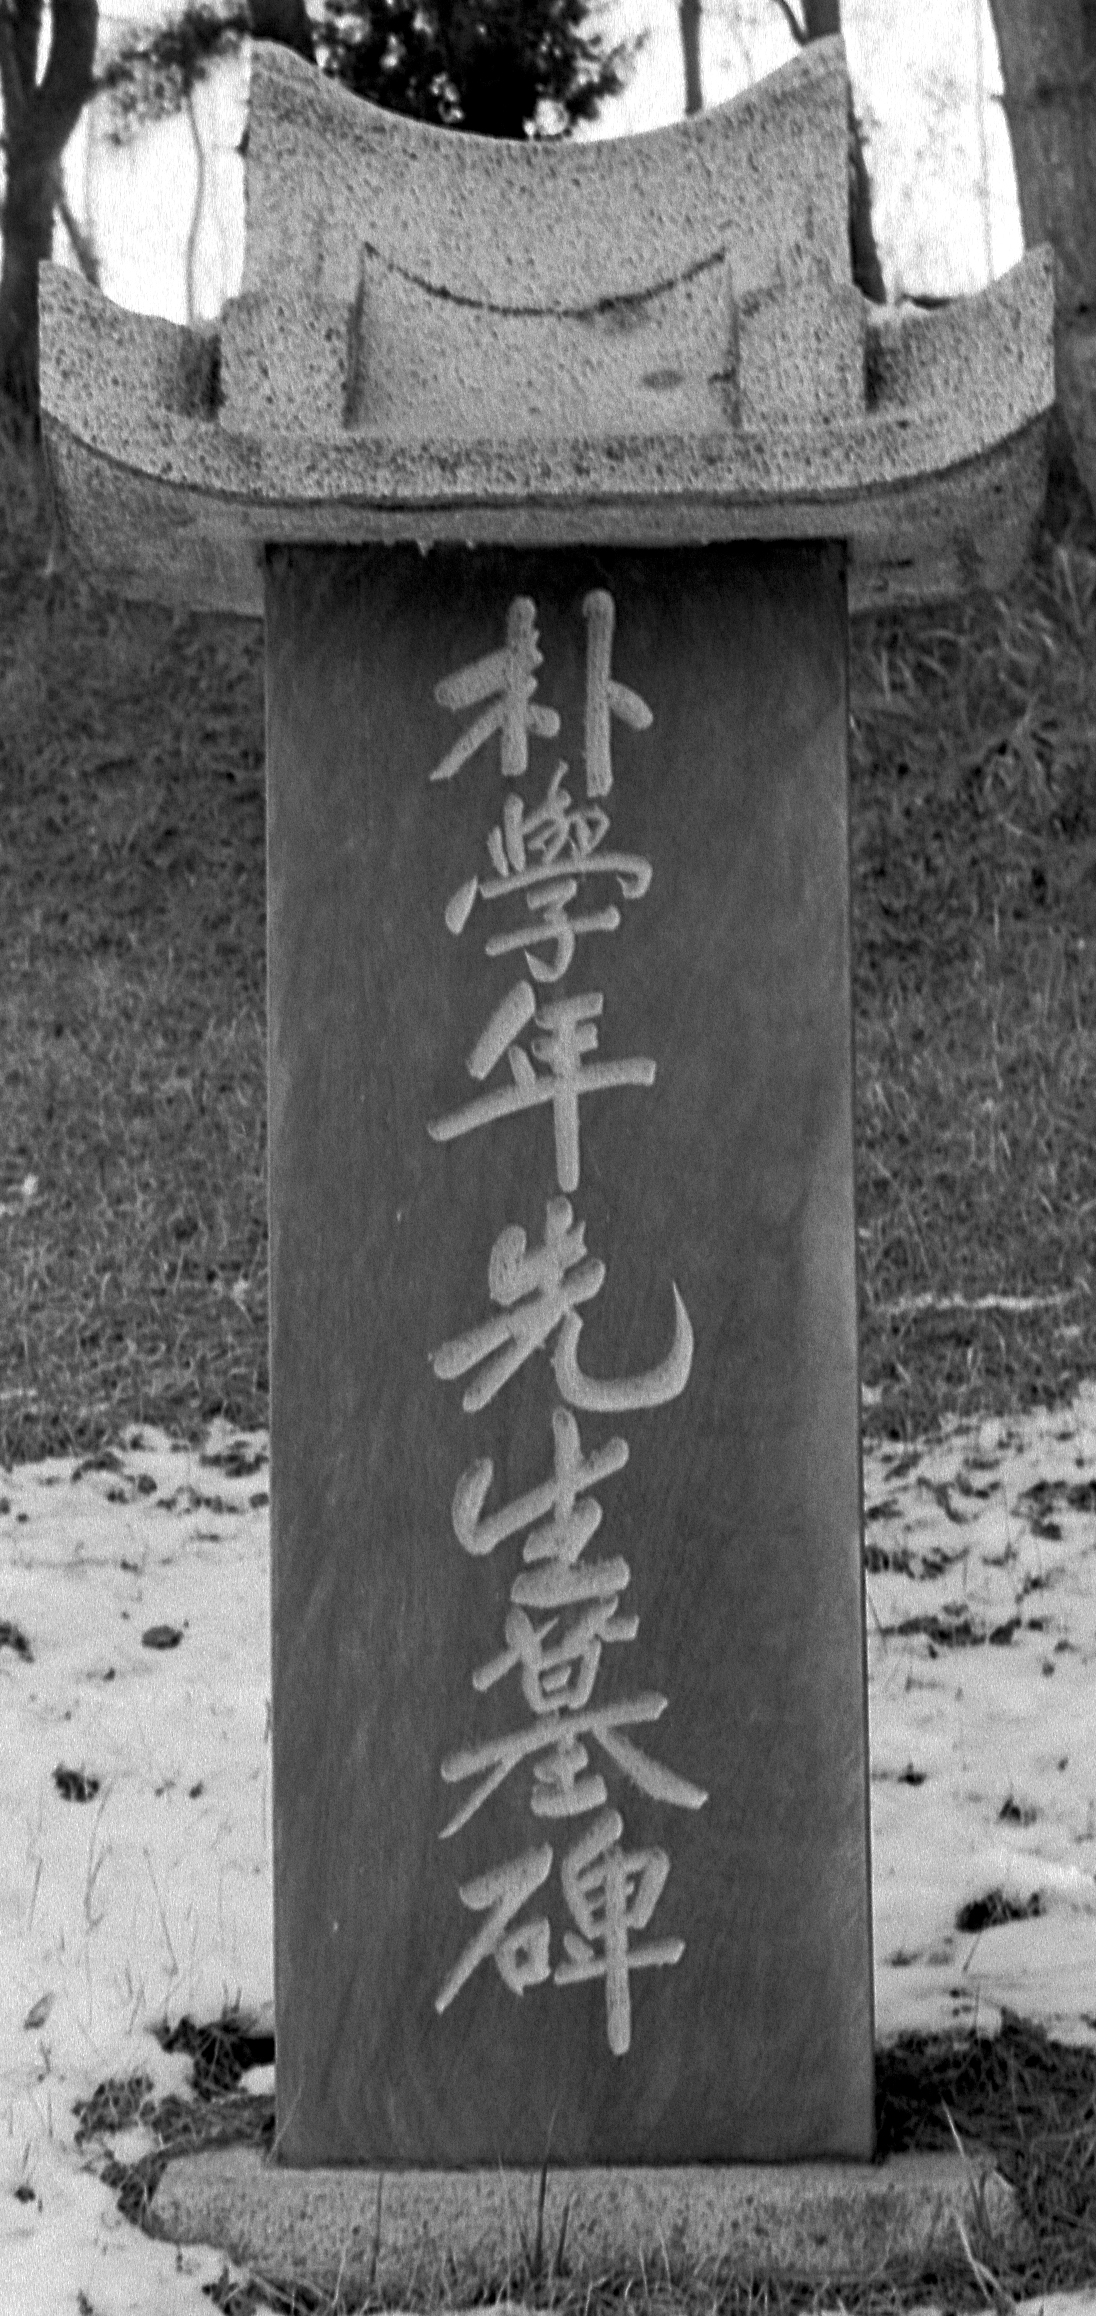 朴學年先生墓碑